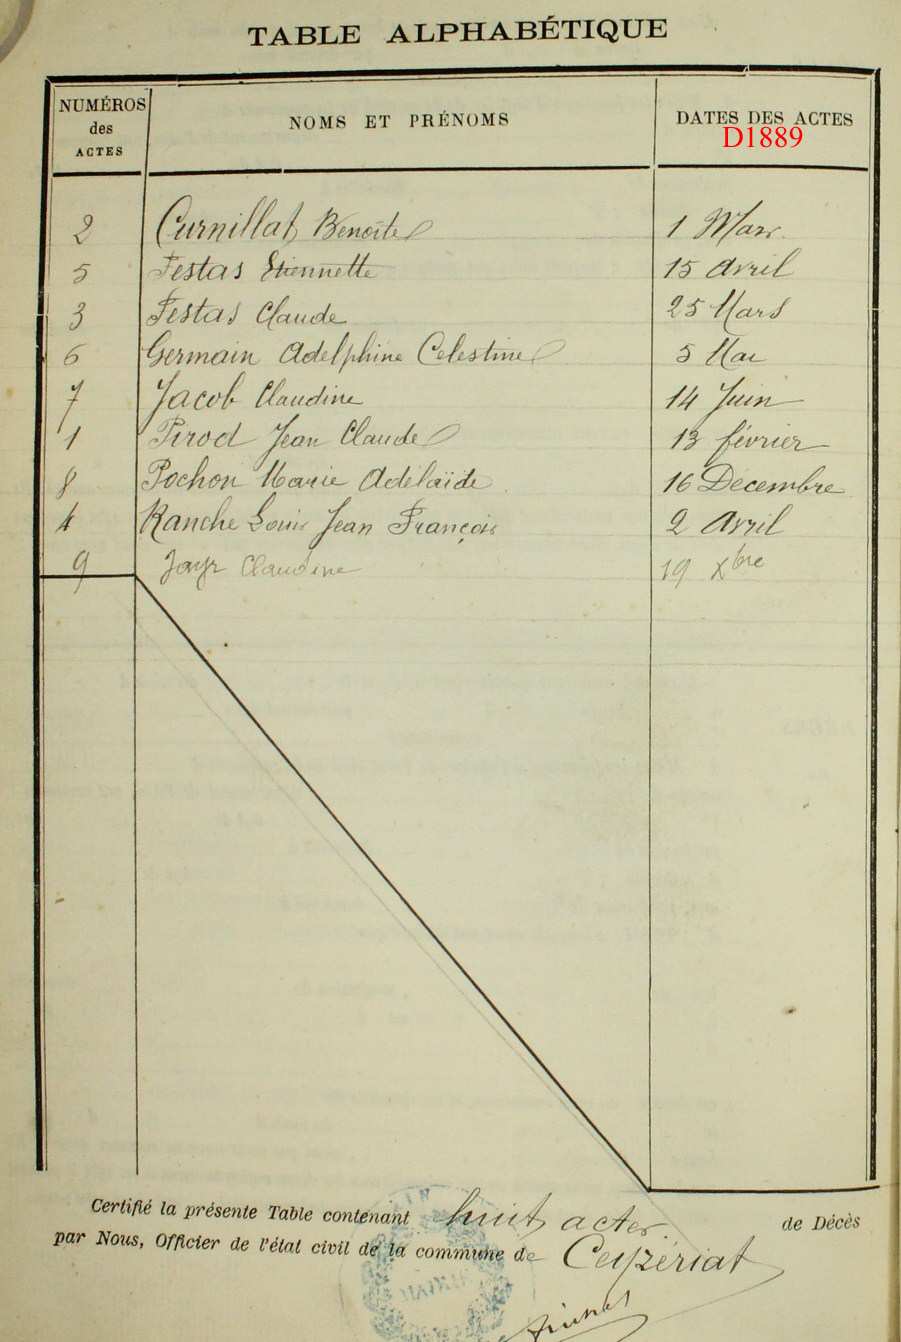 TABLE ALPHABÉTIQUE
NUMÉROS des ACTES NOMS ET PRÉNOMS DATES DES ACTES
D1889
2 Curnillat Benoite 1 Mars
5 Festas Etiennette 15 Avril
3 Festas Claude 25 Mars
6 Germain Adelphine Celestine 5 Mai
7 Jacob Claudine 14 Juin
1 Pirod Jean Claude 13 février
8 Pochon Marie Adélaïde 16 Décembre
4 Ranche Louis Jean François 2 Avril
9 Claudine 19 Xbre
Certifié la présente Table contenant huit actes de Décès
par Nous, Officier de l'état civil de la commune de Ceyzériat